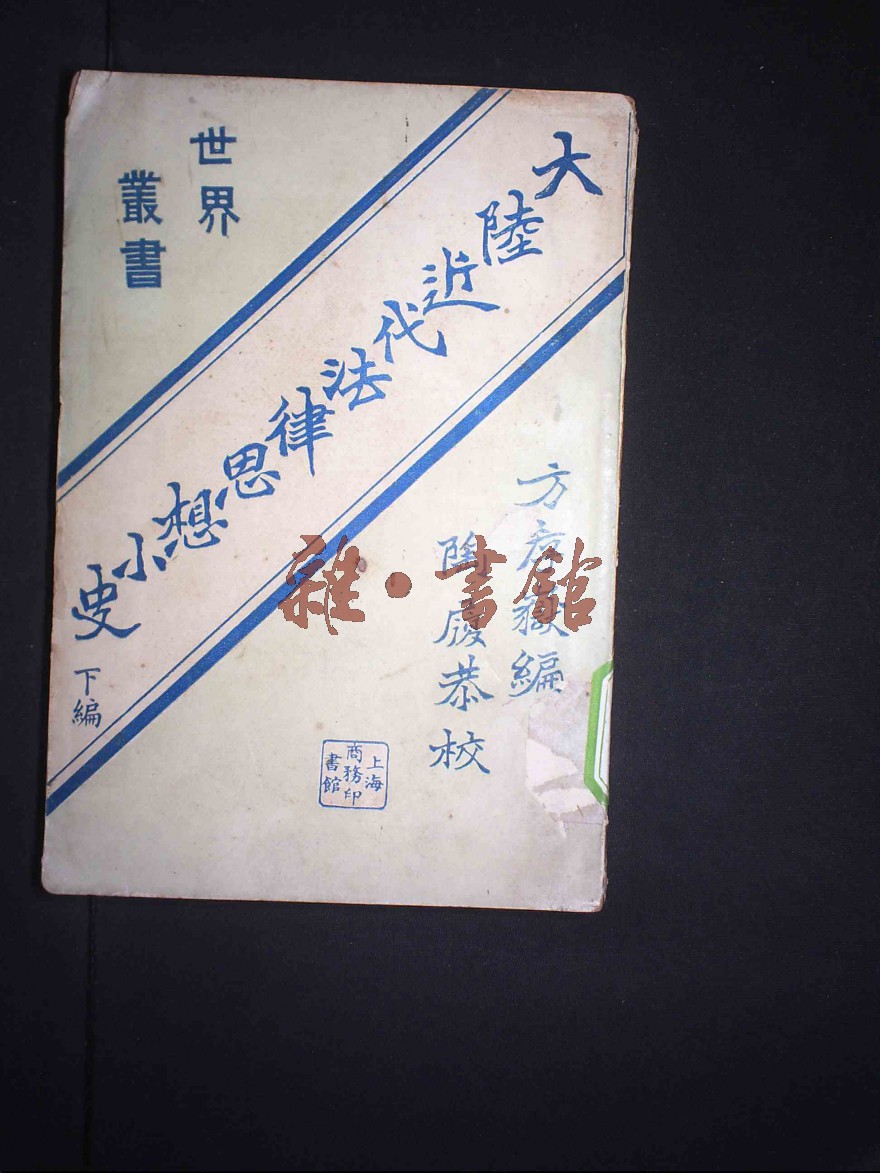 世界
叢書
大陸近代法律思想小史
下編
方孝嶽編
陶履恭校
上海
商務印
書館
雜·書館